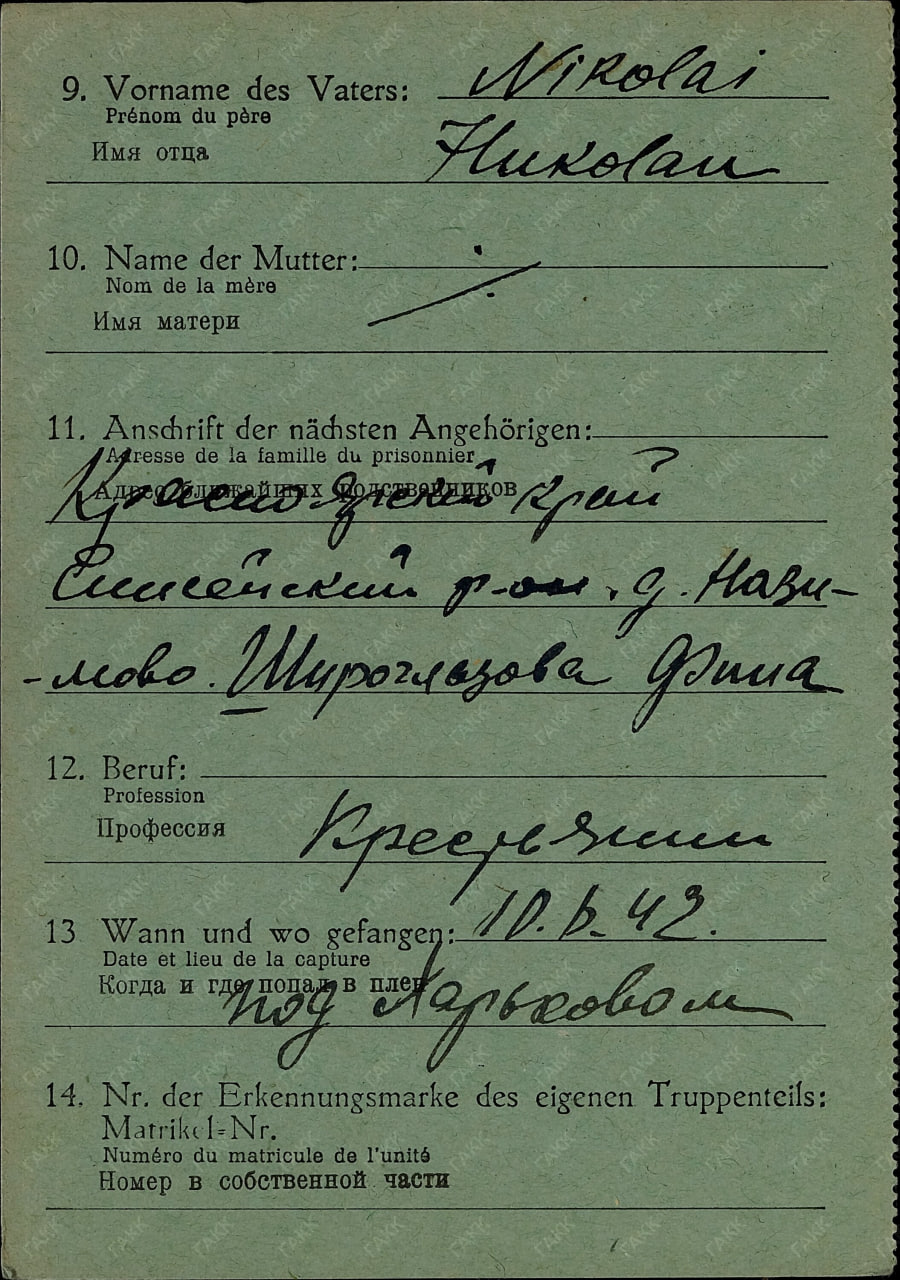 9. Vorname des Vaters: Nikolai
Prénom du père
Имя отца Николаи
10. Name der Mutter: ⁒
Nom de la mère
Имя матери
11. Anschrift der nächsten Angehörigen:
Adresse de la famille du prisonnier
Адрес ближайших родственников
Красноярский край
Енисейский р-он. д. Нази-
-мово. Широглазова Фина
12. Beruf:
Profession
Профессия Крестьянин
13 Wann und wo gefangen: 10.6.42.
Date et lieu de la capture
Когда и где попал в плен
под Харьковом
14. Nr. der Erkennungsmarke des eigenen Truppenteils:
Matrikel-Nr.
Numéro du matricule de l'unité
Номер в собственной части